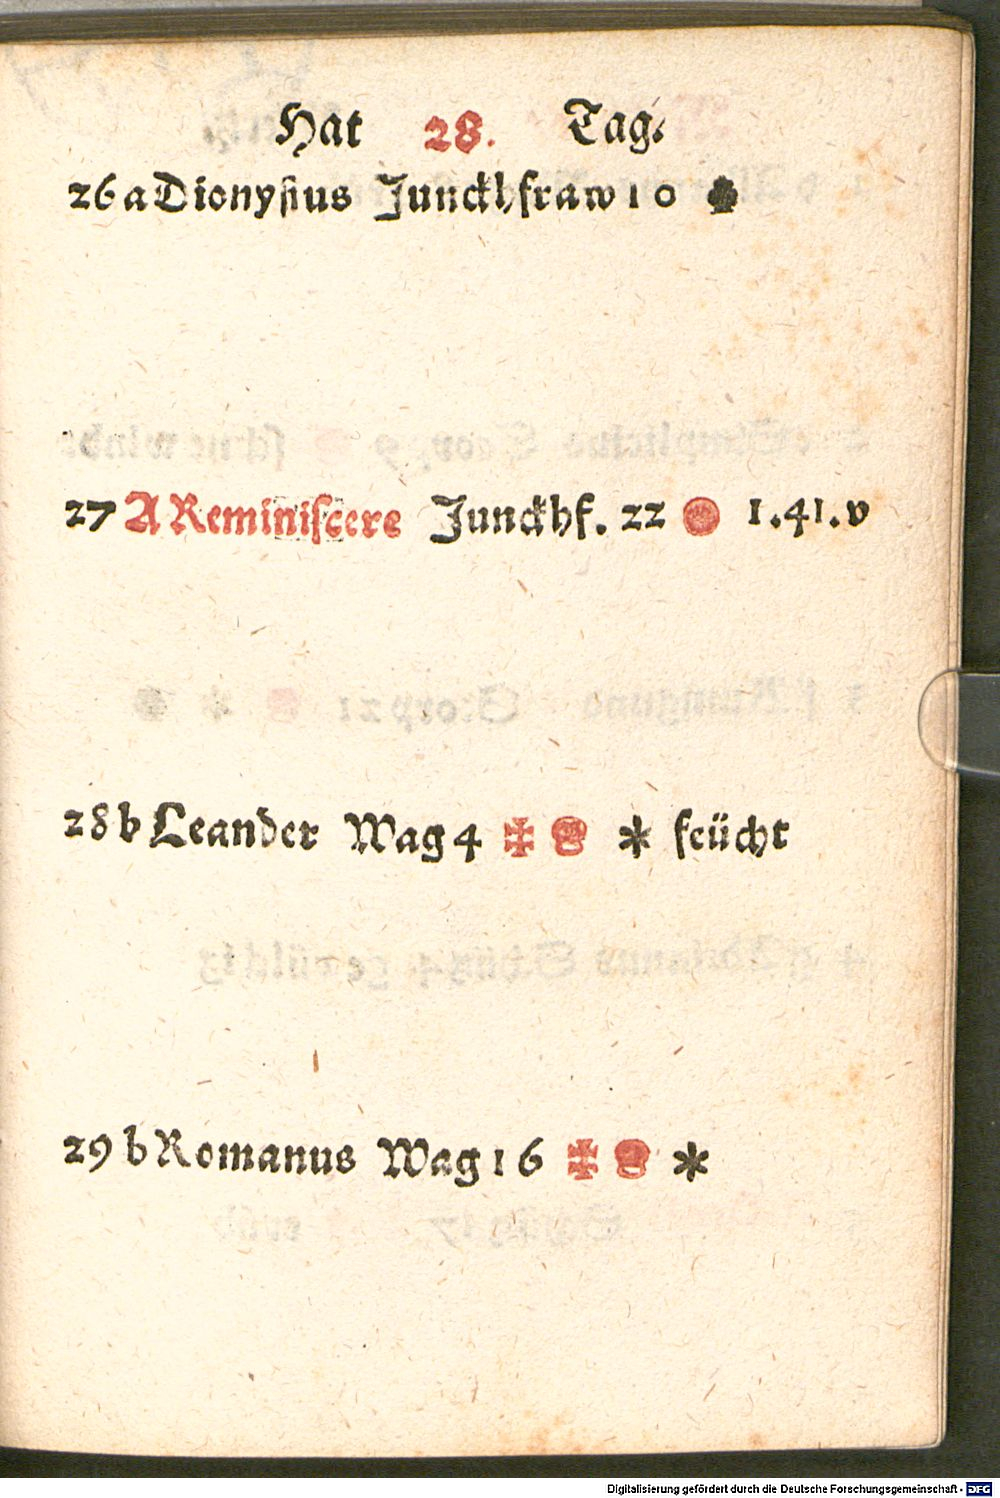 Hat 28. Tag.
26 a Dionysius Junckhfraw 10
27 A Reminiscere Junckhf. 22 1.41.v
28 b Leander Wag 4 ✠ * feücht
29 b Romanus Wag 16 ✠ *
Digitalisierung gefördert durch die Deutsche Forschungsgemeinschaft - DFG